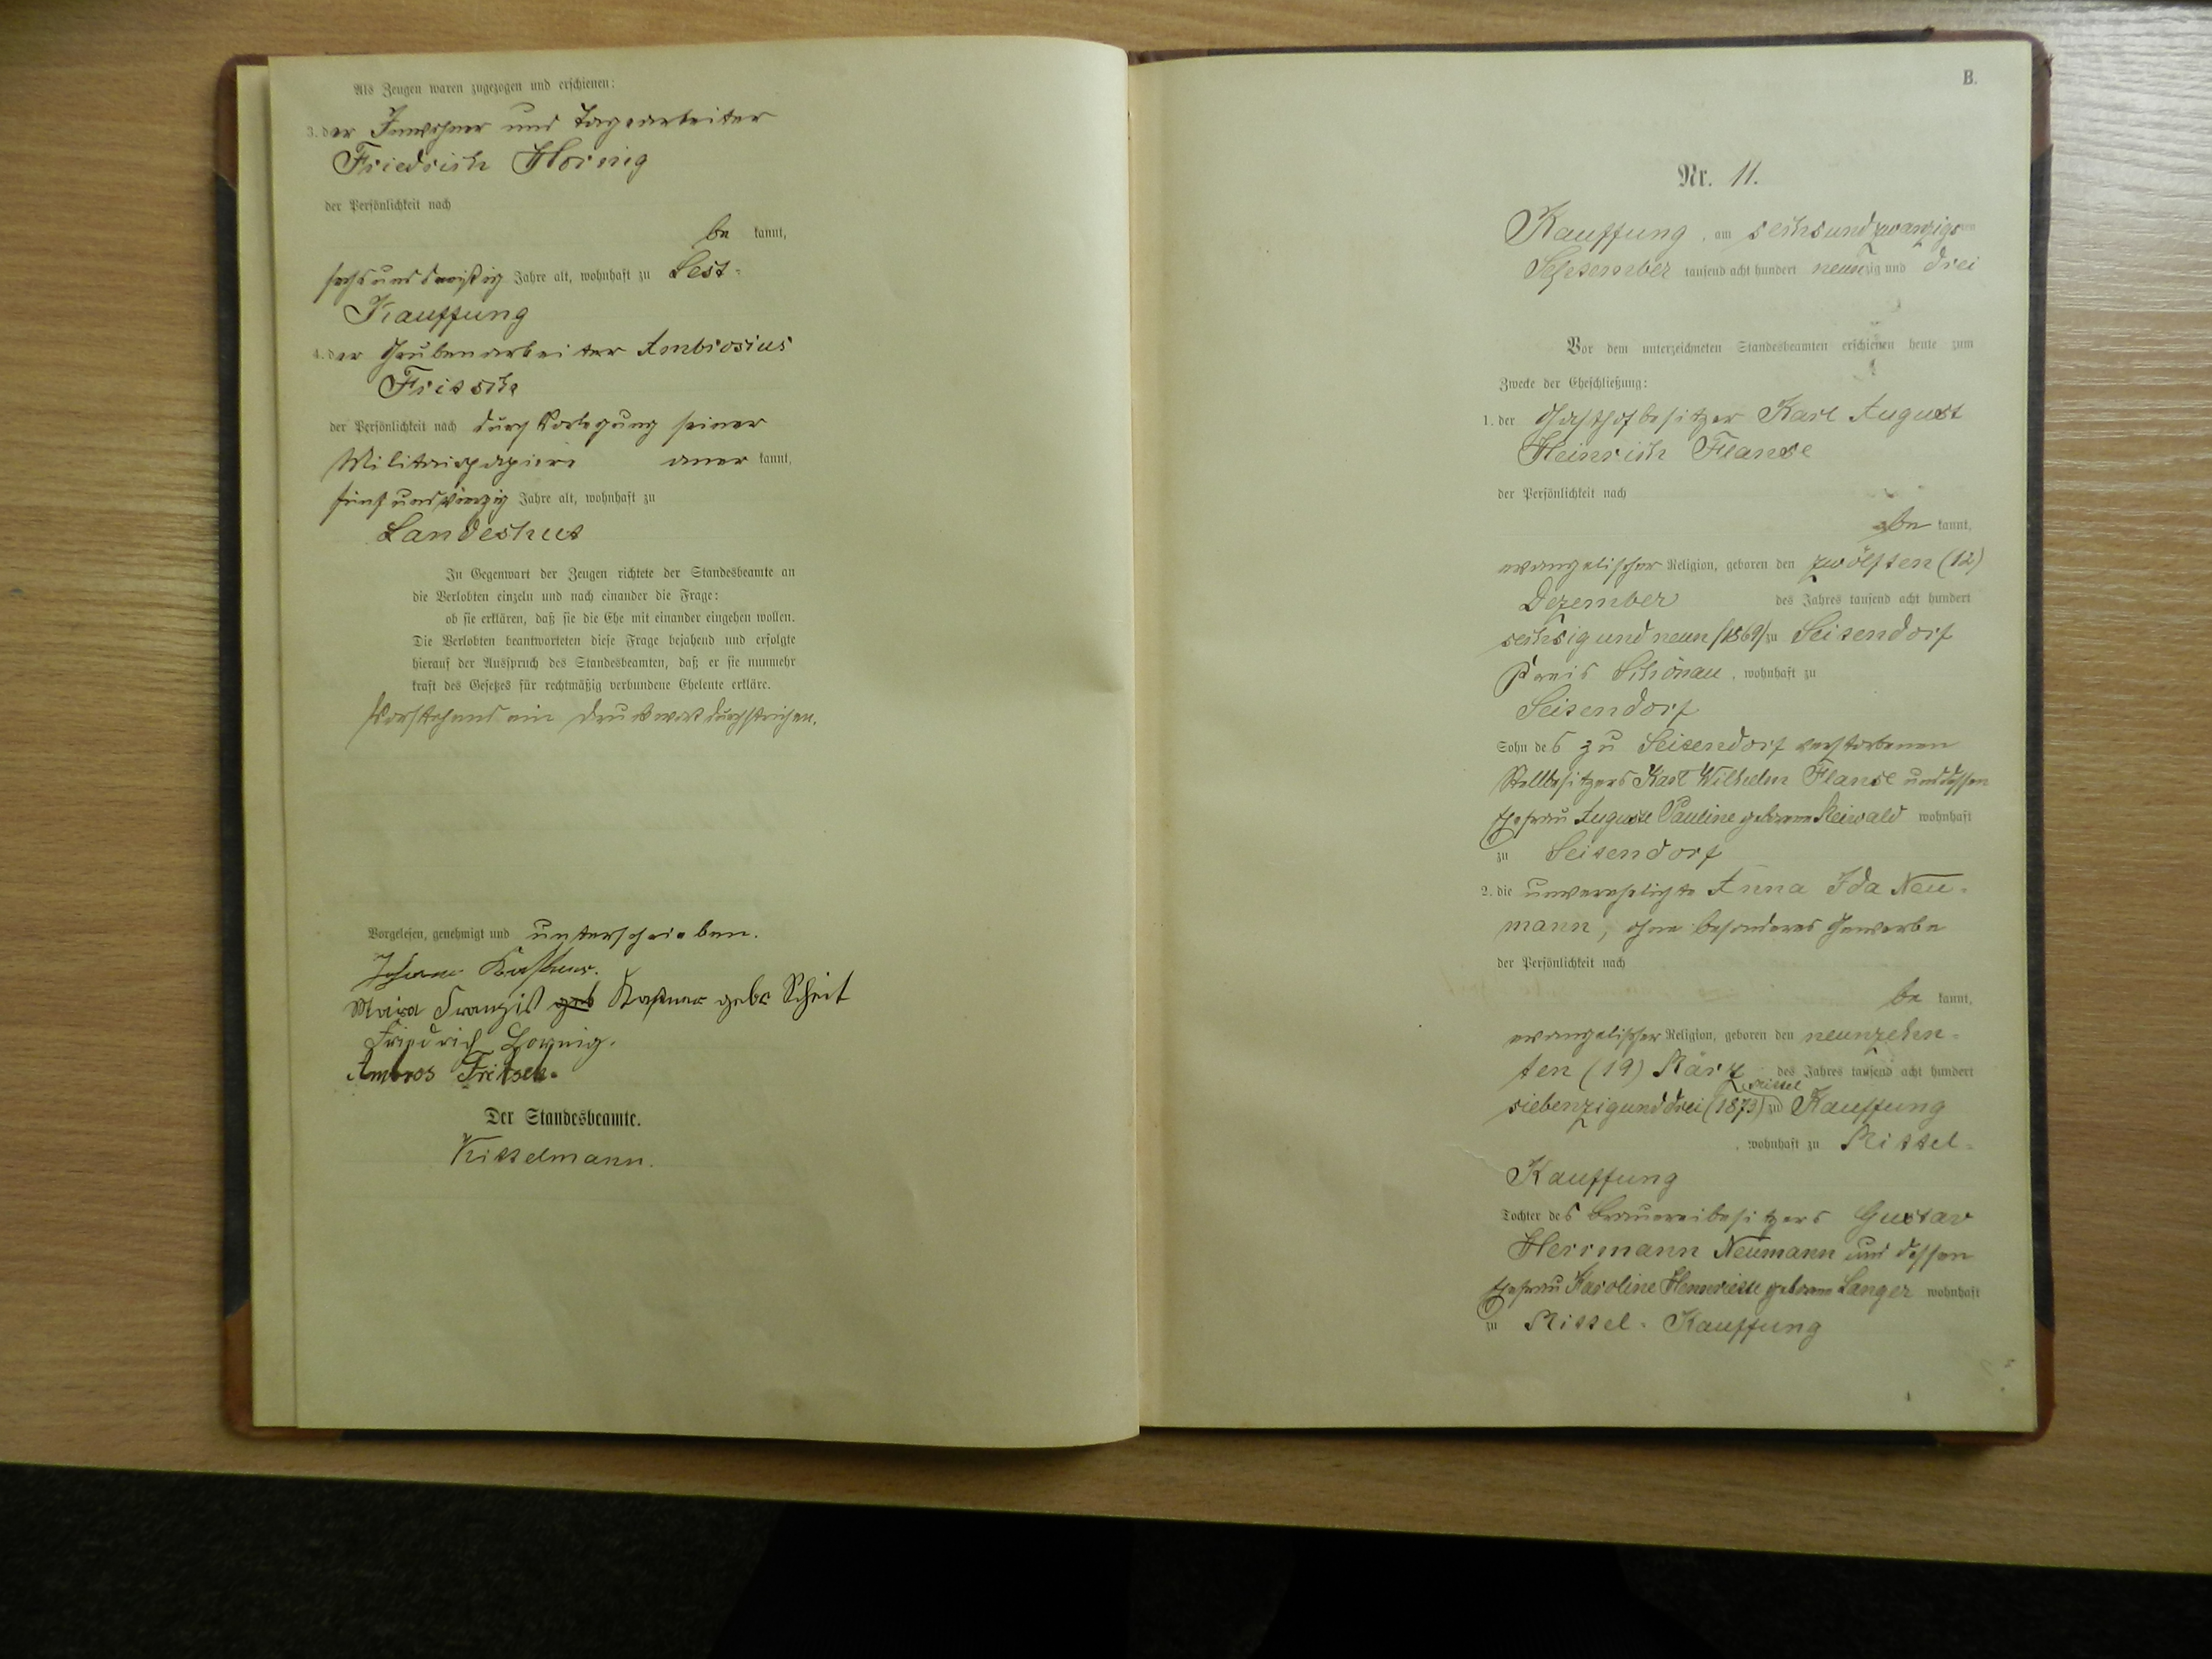 Als Zeugen waren zugezogen und erschienen:
3. der Inwohner und Tagearbeiter
Friedrich Hornig
der Persönlichkeit nach
be kannt,
sechsunddreißig Jahre alt, wohnhaft zu
Kauffung
4. der Grubenarbeiter Ambrosius
der Persönlichkeit nach durch Vorlegung seiner
Militairpapiere aner kannt,
fünfundvierzig Jahre alt, wohnhaft zu
Landeshut
In Gegenwart der Zeugen richtete der Standesbeamte an
die Verlobten einzeln und nach einander die Frage:
ob sie erklären, daß sie die Ehe mit einander eingehen wollen.
Die Verlobten beantworteten diese Frage bejahend und erfolgte
hierauf der Ausspruch des Standesbeamten, daß er sie nunmehr
kraft des Gesetzes für rechtmäßig verbundene Eheleute erkläre.
Vorstehend ein Druckwort durchstrichen.
Vorgelesen, genehmigt und unterschrieben.
Maria geb Kastner geb Scheit
Friedrich Hornig.
Ambros Fritsch.
Der Standesbeamte.
Kittelmann.
B.
Nr. 11.
Kauffung, am sechsundzwanzigsten
September tausend acht hundert neunzig und drei
Vor dem unterzeichneten Standesbeamten erschienen heute zum
Zwecke der Eheschließung:
1. der Gasthofbesitzer Karl August
Heinrich
der Persönlichkeit nach
be kannt,
evangelischer Religion, geboren den zwölften (12)
Dezember des Jahres tausend acht hundert
sechsig und neun (1869) zu Seitendorf
Kreis Schönau, wohnhaft zu
Seitendorf
Sohn des zu Seitendorf verstorbenen
Stellbesitzers Karl Wilhelm und dessen
Ehefrau Auguste Pauline geborene wohnhaft
zu Seitendorf
2. die unverehelichte Anna Ida Neu-
mann, ohne besonderes Gewerbe
der Persönlichkeit nach
be kannt,
evangelischer Religion, geboren den neunzehn-
ten (19) März des Jahres tausend acht hundert
siebenzig und drei (1873) zu Mittel Kauffung
, wohnhaft zu Mittel-
Kauffung
Tochter des Brauereibesitzers Gustav
Herrmann Neumann und dessen
Ehefrau Karoline Henriette geborene Langer wohnhaft
zu Mittel-Kauffung